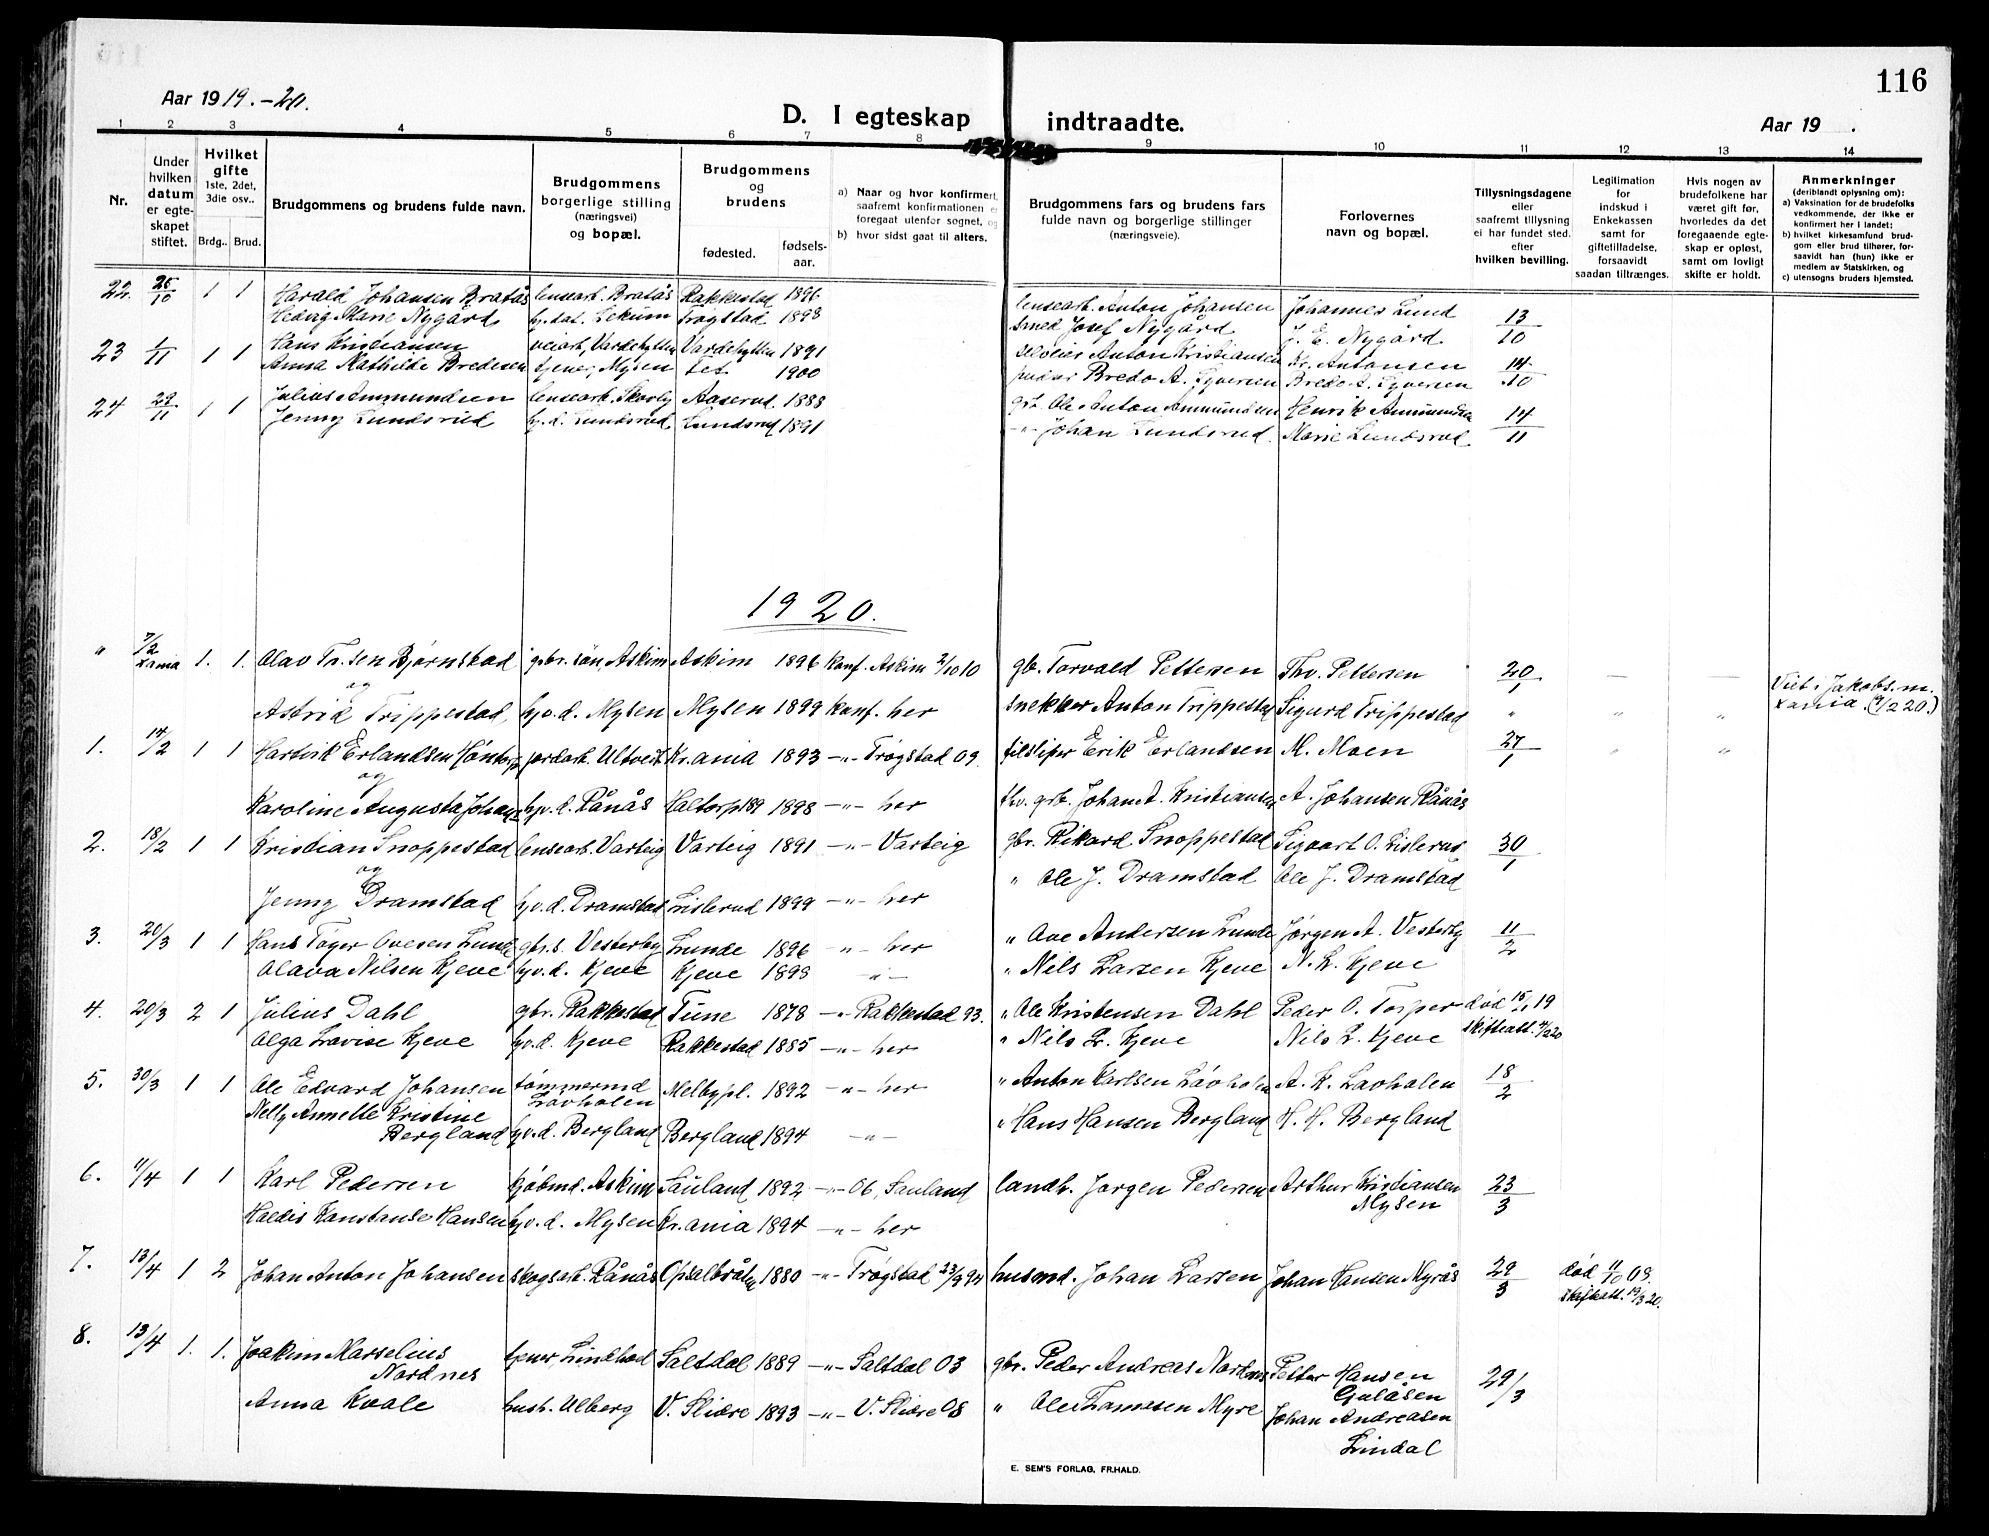 116
Aar 1919.-20.
D. I egteskap indtraadte.
Aar 19 .
1 2 3 4 5 6 7 8 9 10 11 12 13 14
Nr.
Under hvilken datum er egteskapet stiftet.
Hvilket gifte
1ste, 2det, 3die osv..
Brdg.. Brud.
Brudgommens og brudens fulde navn.
Brudgommens borgerlige stilling (næringsvei) og bopæl.
Brudgommens og brudens
fødested.
fødsels-aar.
a) Naar og hvor konfirmert, saafremt konfirmationen er foregaat utenfor sognet, og
b) hvor sidst gaat til alters.
Brudgommens fars og brudens fars fulde navn og borgerlige stillinger (næringsveie).
Forlovernes navn og bopæl.
Tillysningsdagene eller saafremt tillysning ei har fundet sted. efter hvilken bevilling.
Legitimation for indskud i Enkekassen samt for giftetilladelse, forsaavidt saadan tiltrænges.
Hvis nogen av brudefolkene har været gift før, hvorledes da det foregaaende egteskap er opløst, samt om lovligt skifte er holdt.
Anmerkninger (deriblandt oplysning om):
a) Vaksination for de brudefolks vedkommende, der ikke er konfirmert her i landet;
b) hvilket kirkesamfund brudgom eller brud tilhører, forsaavidt han (hun) ikke er medlem av Statskirken, og
c) utensogns bruders hjemsted.
22. 26/10 1 1 Harald Johansen Bratås lensearb. Bratås Rakkestad 1896 lensearb. Anton Johansen Johannes Lund 13/10
Hedvig Marie Nygård hj. dat. Lekum Trøgstad 1898 smed Josef Nygård J. E. Nygård
23 1/11 1 1 Hans Kristiansen veiarb, Vardehytten Vardehytten 1891 Anton Kristiansen Kr. Antonsen 14/10
Anna Mathilde Bredesen tjener, Mysen 1900 Bredo A. Syversen Bredo A. Syversen
24 29/11 1 1 Julius Ammundsen lensearb. Skovly Aaserud 1888 grb. Ole Anton Ammundsen Henrik Ammundsen 14/11
Jenny Lundsrud hj. d. Lundsrud Lundsrud 1891 -"- Johan Lundsrud Marie Lundsrud
1920.
" 7/2 Xania 1. 1. Olav Tr.sen Bjørnstad gbr. søn, Askim Askim 1896 konf. Askim 2/10 10 gb. Torvald Pettersen Thv. Pettersen 20/1 — — Viet i Jakobs. m.
og
Astrid Trippestad, hj.v.d. Mysen Mysen 1899 konf. her snekker Anton Trippestad Sigurd Trippestad " " " Xania. (7/2 20.)
1. 14/2 1 1 Hartvik Erlandsen jordarb. Kr.ania 1893 -"- Trøgstad 09. Erik Erlandsen M. Moen 27/1 " "
og
Karoline Augusta Johans. hj.v.d. Rånås 1898 -"- her fhv. grb. Johan A. Kristiansen A. Johansen Rånås
2. 18/2 1 1 Kristian Snoppestad lensearb. Varteig Varteig 1891 -"- Varteig gbr. Rikard Snoppestad Sigvart O. Lislerud 30/1
og
Jenny Dramstad hj.v.d. Dramstad Lislerud 1899 -"- her " Ole J. Dramstad Ole J. Dramstad
3. 20/3 1 1 Hans Tøger Ovesen Lunde gbr.s. Vesterby Lunde 1896 -"- her " Ove Andersen Lunde Jørgen A. Vesterby 11/2
Olava Nilsen Kjeve hj.v.d. Kjeve Kjeve 1898 -"- " Nils Larsen Kjeve N. L. Kjeve
4. 20/3 2 1 Julius Dahl gbr. Rakkestad Tune 1878 -"- Rakkestad 93. " Ole Kristensen Dahl Peder O. Torper død 15/1 19
Olga Lovise Kjeve hj.v.d. Kjeve Rakkestad 1885 -"- her " Nils L. Kjeve Nils L. Kjeve skifteatt.
5. 30/3 1 1 Ole Edvard Johansen tømmermd Løvholen Melbypl. 1892 -"- her " Anton Karlsen Løvholen A. K. Løvholen 18/2
Nelly Annette Kristine
Bergland hj.v.d. Bergland Bergland 1894 -"- " Hans Hansen Bergland H. H. Bergland
6. 11/4 1 1 Karl Pedersen kjøbmd. Askim Sauland 1892 -"- 06, Sauland landh. Jørgen Pedersen Arthur Kristiansen Mysen 23/3
Haldis Konstanse Hansen hj.v.d. Mysen Kr.ania 1894 -"- her
7. 13/4 1 2 Johan Anton Johansen skogsarb. Rånås 1880 -"- Trøgstad 23/9 94 husmd. Johan Larsen Johan Hansen Myrås 29/3 død 11/10 08.
skifteatt. 19/3 20.
8. 13/4 1. 1. Joakim Marselius Nordnes tjener Lindhod Saltdal 1889 -"- Saltdal 03 gbr. Peder Andreas Nordnes Petter Hansen Gulåsen 29/3
Anna Kvale hush. Ulberg V. Slidre 1893 -"- V. Slidre 08 " Ole Tomesen Myre Johan Andreasen Lindal
E. SEM'S FORLAG, FR.HALD.